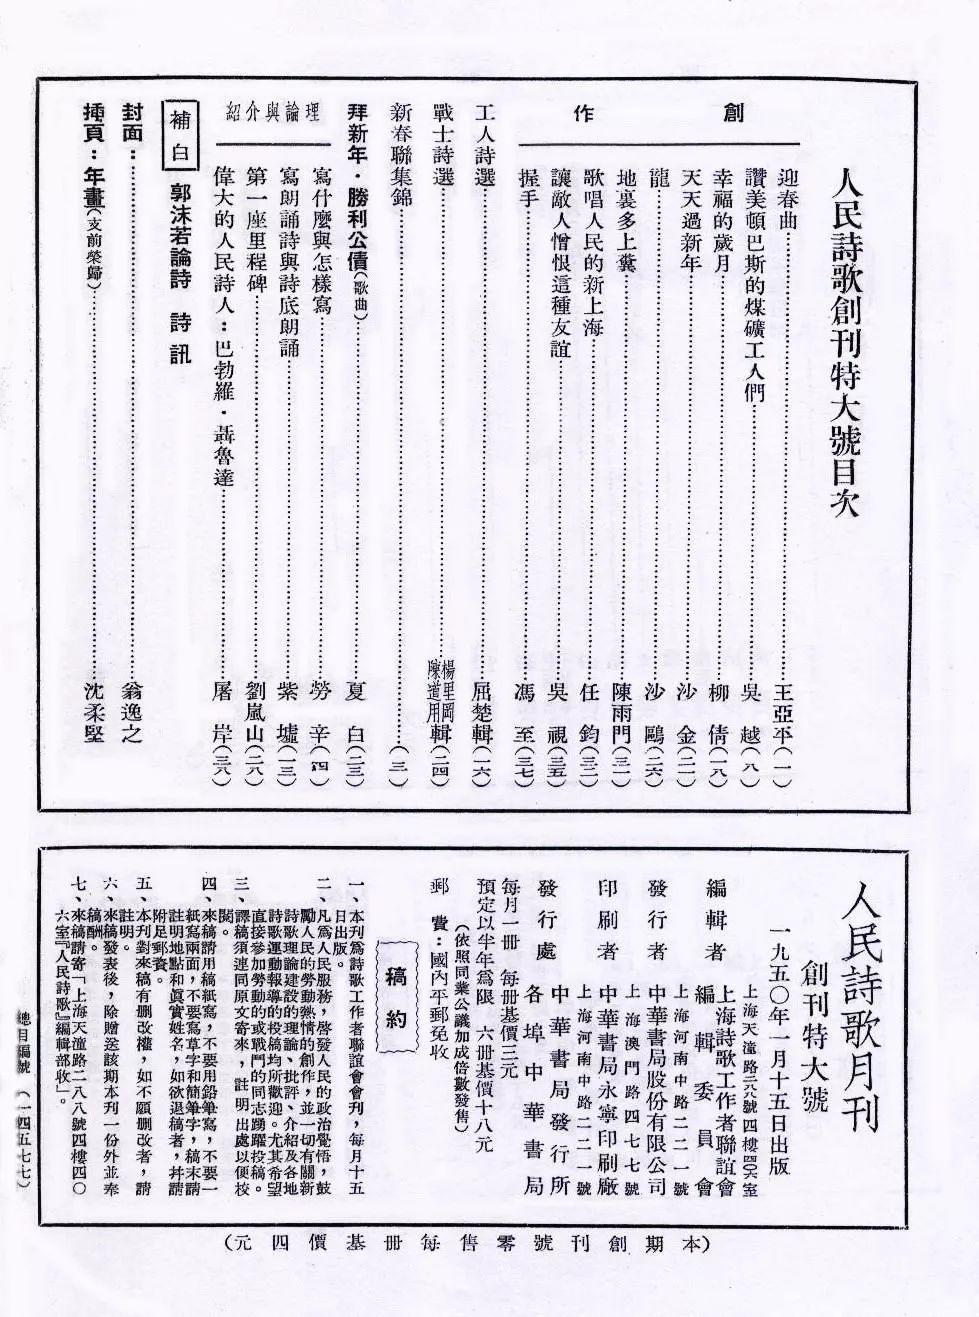 人民詩歌創刊特大號目次
創作
迎春曲……王亞平(一)
讚美頓巴斯的煤礦工人們……吳越(八)
幸福的歲月……柳倩(一八)
天天過新年……沙金(二一)
龍……沙鷗(二六)
地裏多上糞……陳雨門(三一)
歌唱人民的新上海……任鈞(三二)
讓敵人憎恨這種友誼……吳視(三五)
握手……馮至(三七)
工人詩選……屈楚輯(一六)
戰士詩選……楊里岡 陳道用輯(二四)
新春聯集錦……(三)
拜新年·勝利公債(歌曲)……夏白(二三)
理論與介紹
寫什麼與怎樣寫……勞辛(四)
寫朗誦詩與詩底朗誦……紫墟(一三)
第一座里程碑……劉嵐山(二八)
偉大的人民詩人:巴勃羅·聶魯達……屠岸(三八)
補白 郭沫若論詩 詩訊
封面:……翁逸之
插頁:年畫(支前榮歸)……沈柔堅
人民詩歌月刊
創刊特大號
一九五〇年一月十五日出版
編輯者 上海詩歌工作者聯誼會
編輯委員會
上海天潼路二八八號四樓四〇六室
發行者 中華書局股份有限公司
上海河南中路二二一號
印刷者 中華書局永寧印刷廠
上海澳門路四七七號
發行處 中華書局發行所
上海河南中路二二一號
各埠中華書局
每月一冊 每冊基價三元
預定以半年爲限 六冊基價十八元
(依照同業公議加成倍數發售)
郵費:國內平郵免收
稿約
一、本刊爲詩歌工作者聯誼會會刊,每月十五
日出版。
二、凡爲人民服務,啓發人民的政治覺悟,鼓
勵人民的勞動熱情的創作,並一切有關新
詩歌理論建設的理論、批評、介紹及各地
詩歌運動報導的投稿均所歡迎。尤其希望
直接參加勞動的或戰鬥的同志踴躍投稿。
三、譯稿須連同原文寄來,註明出處以便校
閱。
四、來稿請用稿紙寫,不要用鉛筆寫,不要一
紙寫兩面,不要寫草字和簡筆字,稿末請
註明地點和眞實姓名,如欲退稿者,幷請
附足郵費。
五、本刊對來稿有删改權,如不願删改者,請
註明。
六、來稿發表後,除贈送該期本刊一份外並奉
稿酬。
七、來稿請寄「上海天潼路二八八號四樓四〇
六室『人民詩歌』編輯部收」。
總目編號(一四五七七)
(本期創刊號零售每冊基價四元)